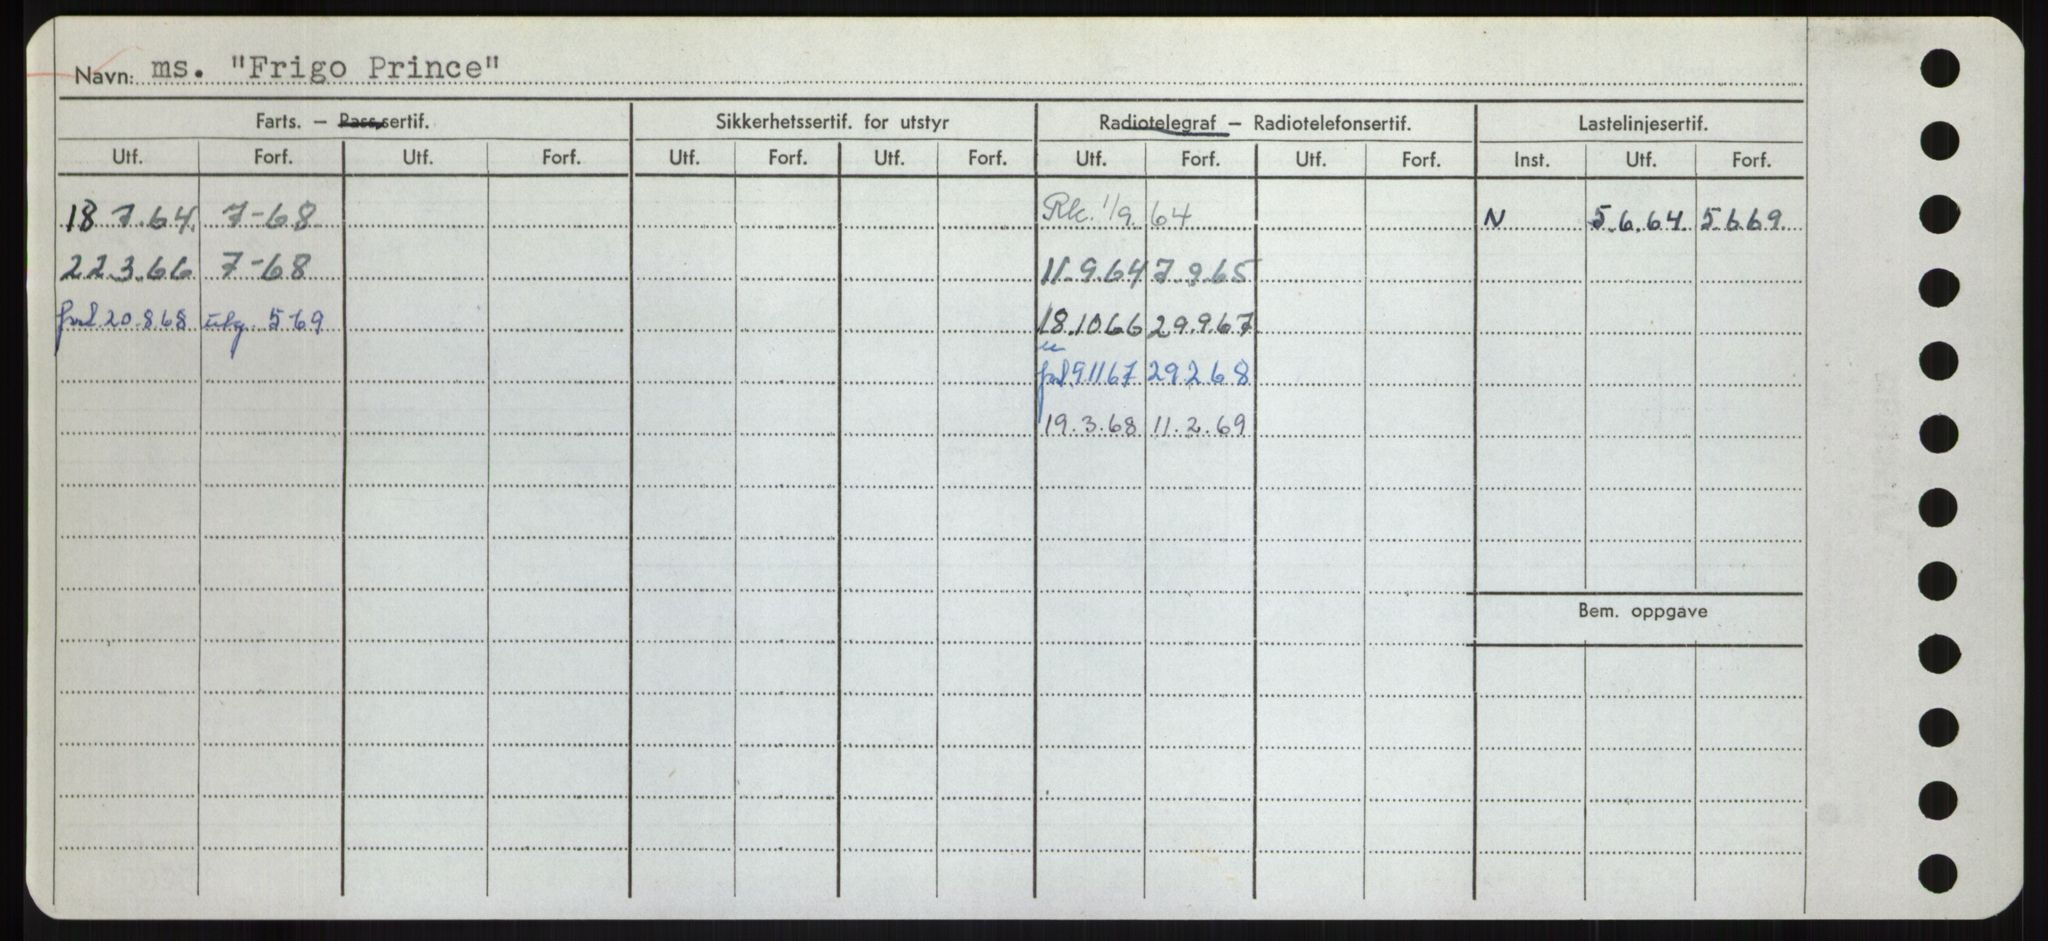 Navn: ms. "Frigo Prince"
Farts. — Pass.sertif. Sikkerhetssertif. for utstyr Radiotelegraf — Radiotelefonsertif. Lastelinjesertif.
Utf. Forf. Utf. Forf. Utf. Forf. Utf. Forf. Utf. Forf. Utf. Forf. Inst. Utf. Forf.
18 7.64. 7-68 Rk. 1/9 64 N 5.6.64. 5669.
22.3.66 7-68 11.9.64 7.9.65
20.8.68 utg. 569 18.10.66 29.9.67
91167 29268
19.3.68 11.2.69
Bem. oppgave